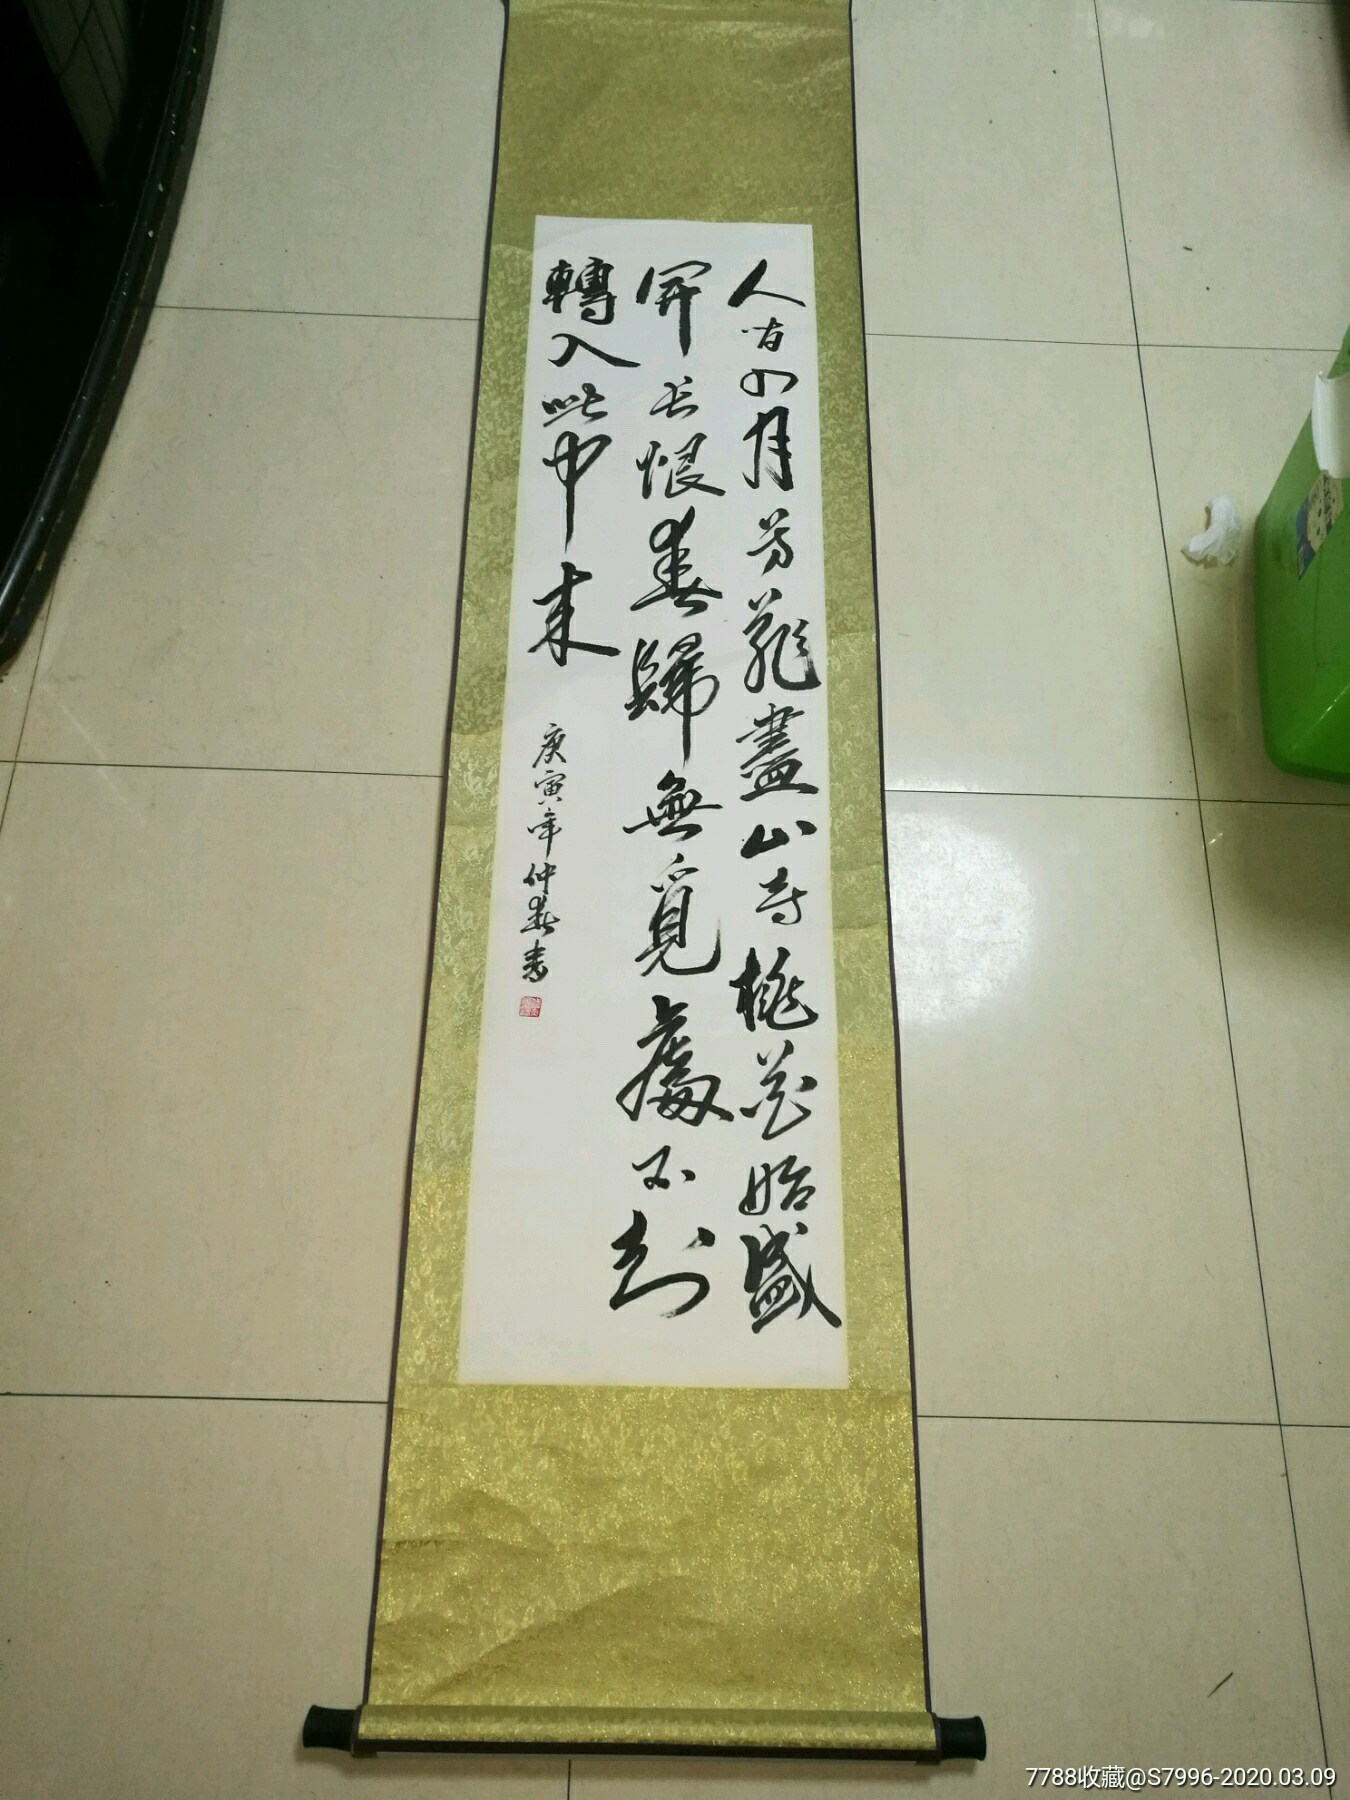 人間四月芳菲盡山寺桃花始盛
開長恨春歸無覓處不知
轉入此中來
庚寅年仲春書
7788收藏@S7996-2020.03.09